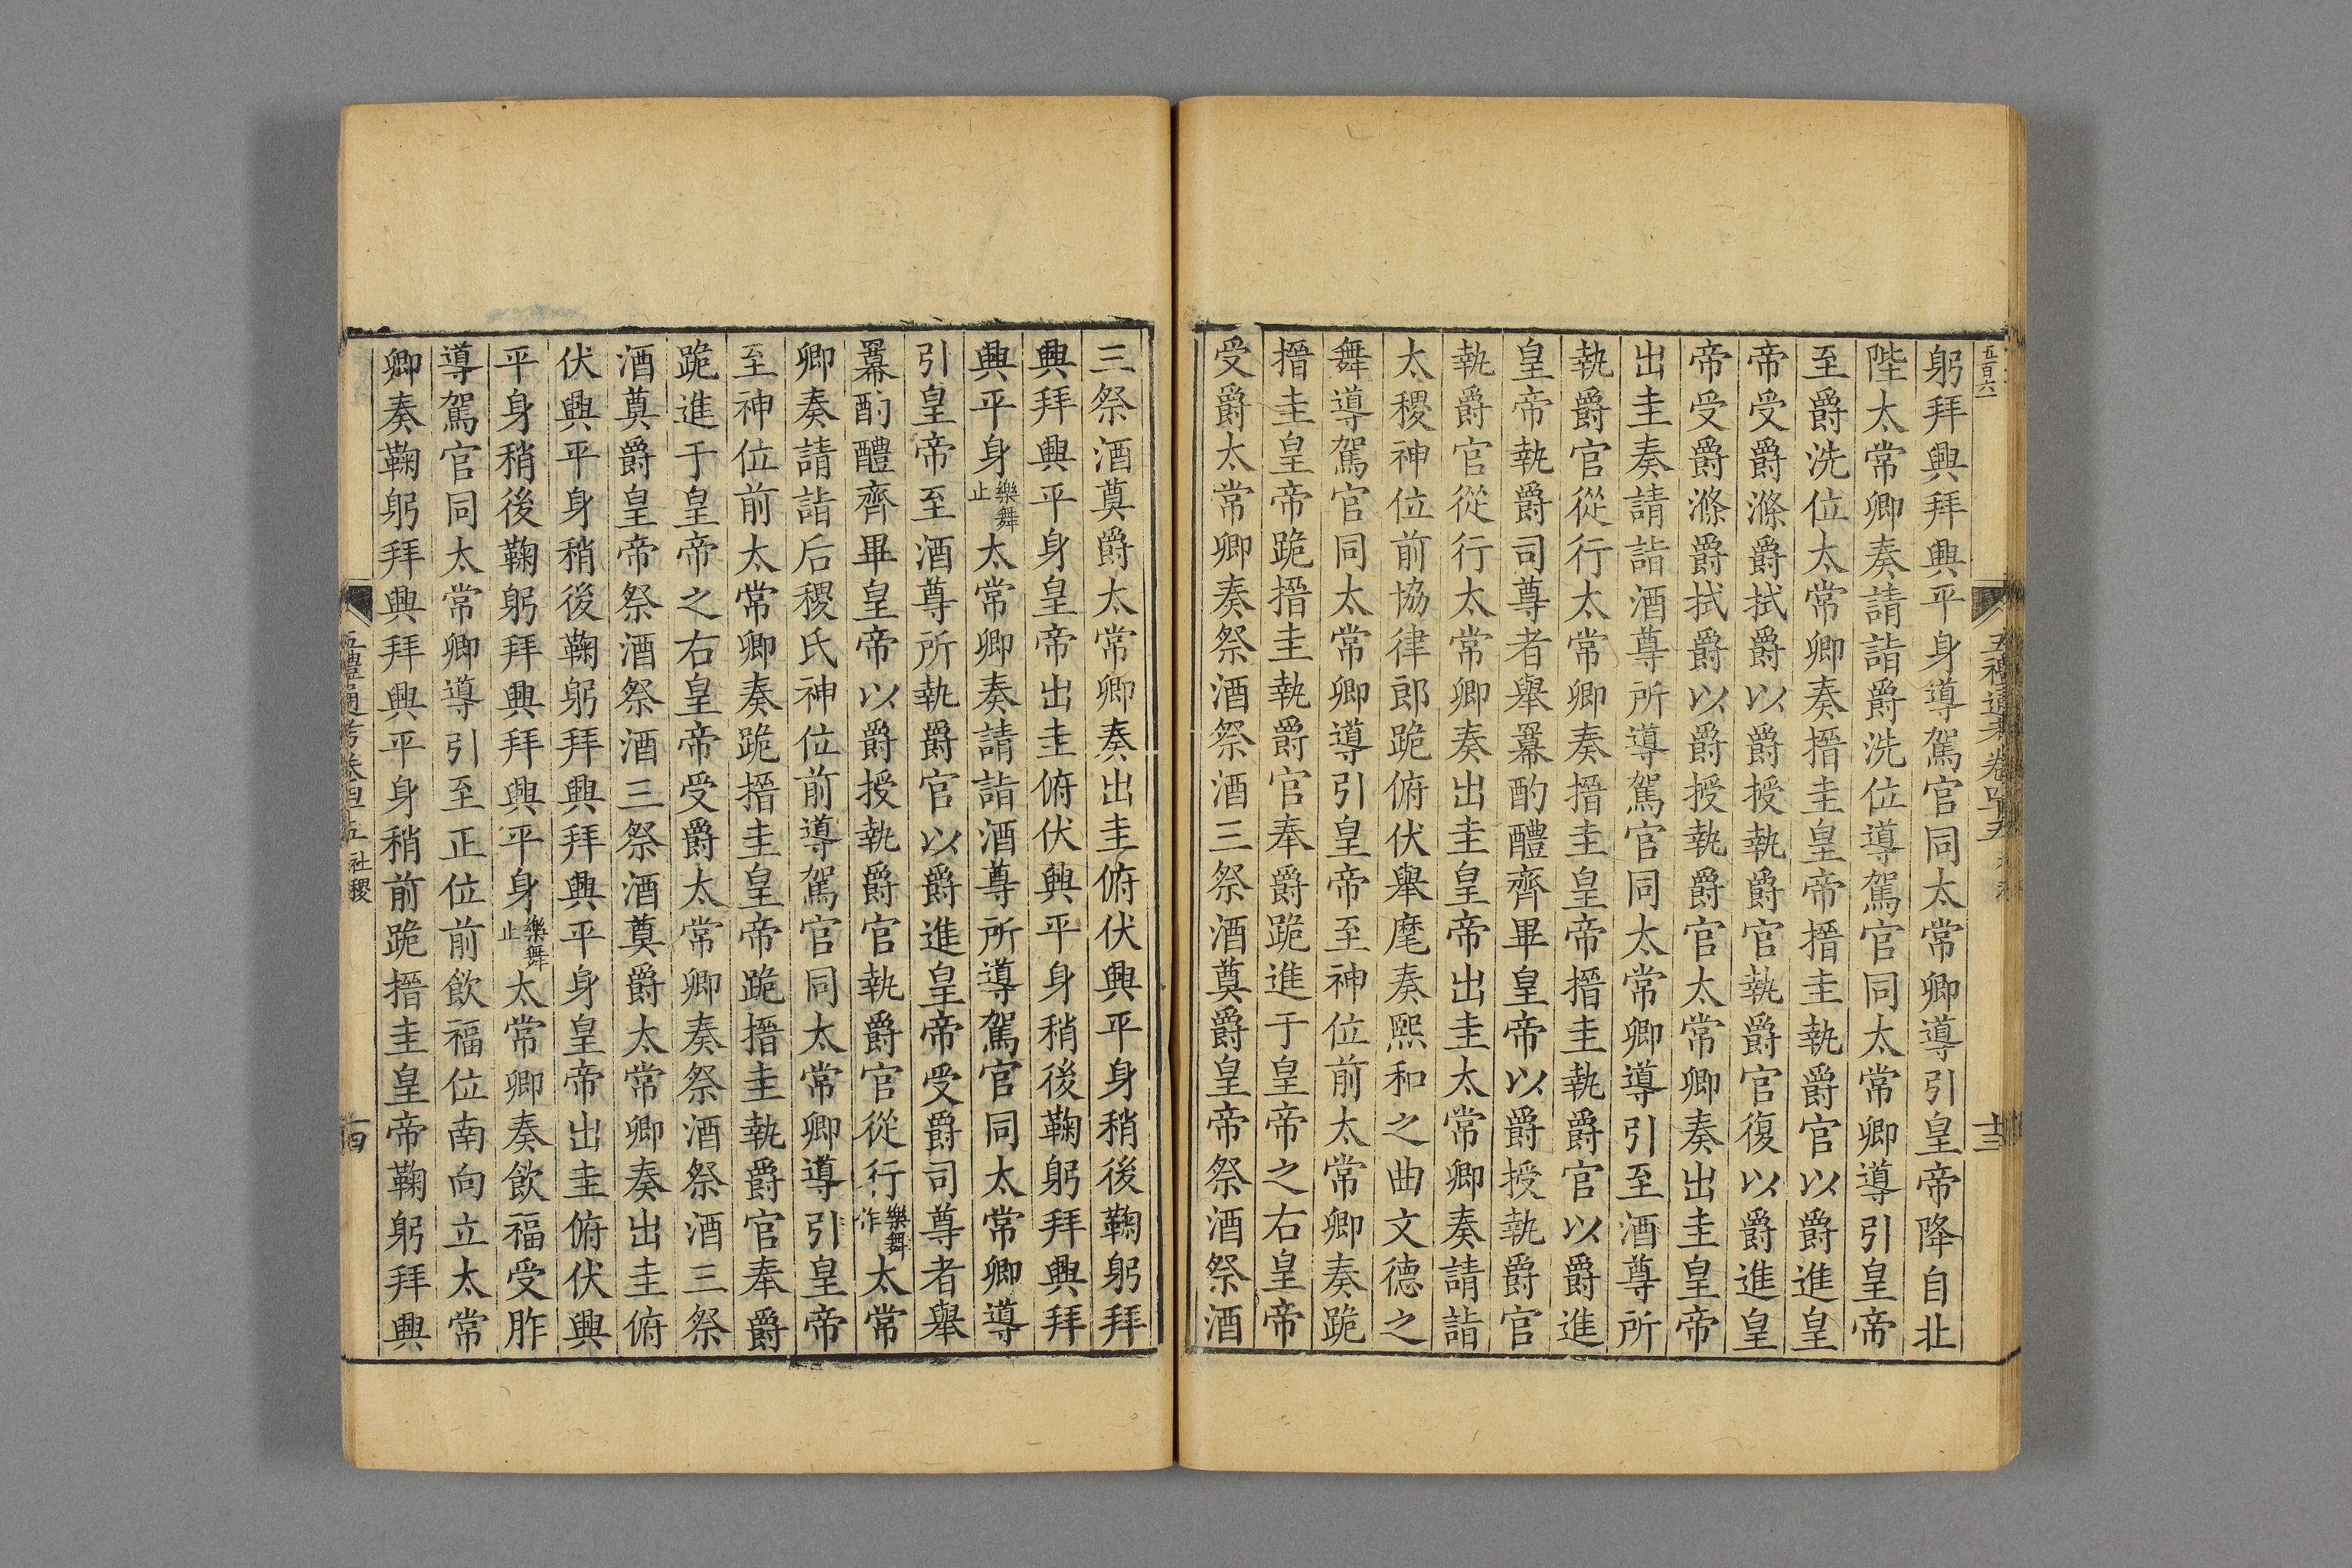 五百六
躬拜興拜興平身導駕官同太常卿導引皇帝降自北
陛太常卿奏請詣爵洗位導駕官同太常卿導引皇帝
至爵洗位太常卿奏搢圭皇帝搢圭執爵官以爵進皇
帝受爵滌爵拭爵以爵授執爵官執爵官復以爵進皇
帝受爵滌爵拭爵以爵授執爵官太常卿奏出圭皇帝
出圭奏請詣酒尊所導駕官同太常卿導引至酒尊所
執爵官從行太常卿奏搢圭皇帝搢圭執爵官以爵進
皇帝執爵司尊者舉羃酌醴齊畢皇帝以爵授執爵官
執爵官從行太常卿奏出圭皇帝出圭太常卿奏請詣
太稷神位前協律郎跪俯伏舉麾奏熙和之曲文德之
舞導駕官同太常卿導引皇帝至神位前太常卿奏跪
搢圭皇帝跪搢圭執爵官奉爵跪進于皇帝之右皇帝
受爵太常卿奏祭酒祭酒三祭酒奠爵皇帝祭酒祭酒
三祭酒奠爵太常卿奏出圭俯伏興平身稍後鞠躬拜
興拜興平身皇帝出圭俯伏興平身稍後鞠躬拜興拜
興平身樂舞止太常卿奏請詣酒尊所導駕官同太常卿導
引皇帝至酒尊所執爵官以爵進皇帝受爵司尊者舉
羃酌醴齊畢皇帝以爵授執爵官執爵官從行樂舞作太常
卿奏請詣后稷氏神位前導駕官同太常卿導引皇帝
至神位前太常卿奏跪搢圭皇帝跪搢圭執爵官奉爵
跪進于皇帝之右皇帝受爵太常卿奏祭酒祭酒三祭
酒奠爵皇帝祭酒祭酒三祭酒奠爵太常卿奏出圭俯
伏興平身稍後鞠躬拜興拜興平身皇帝出圭俯伏興
平身稍後鞠躬拜興拜興平身樂舞止太常卿奏飲福受胙
導駕官同太常卿導引至正位前飲福位南向立太常
卿奏鞠躬拜興拜興平身稍前跪搢圭皇帝鞠躬拜興
五禮通考卷四十五 社稷